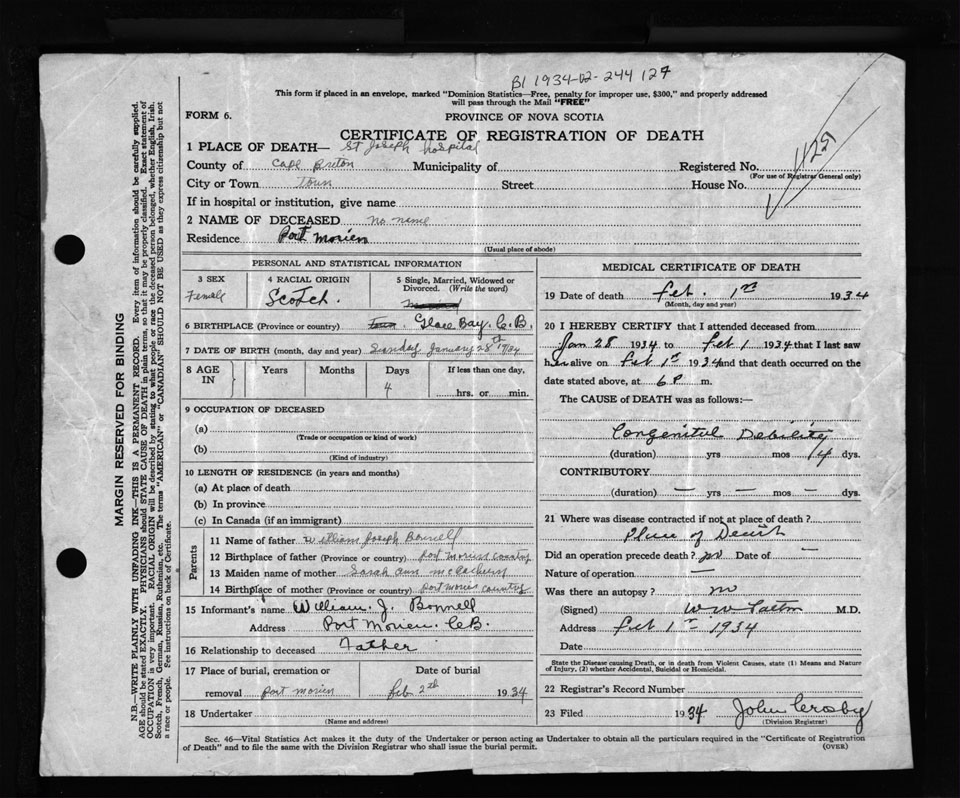 B1 1934-02-244 127
This form if placed in an envelope, marked "Dominion Statistics—Free, penalty for improper use, $300," and properly addressed
will pass through the Mail "FREE"
FORM 6.
PROVINCE OF NOVA SCOTIA
CERTIFICATE OF REGISTRATION OF DEATH
1129
1 PLACE OF DEATH— St Joseph Hospital
County of Cape Breton Municipality of Registered No.
(For use of Registrar General only)
City or Town Town Street House No.
If in hospital or institution, give name
2 NAME OF DECEASED no name
Residence Port Morien
(Usual place of abode)
PERSONAL AND STATISTICAL INFORMATION
3 SEX 4 RACIAL ORIGIN 5 Single, Married, Widowed or
Divorced. (Write the word)
Female Scotch.
6 BIRTHPLACE (Province or country) Glace Bay. C.B.
7 DATE OF BIRTH (month, day and year) Sunday January 28th 1934
8 AGE IN Years Months Days If less than one day,
4 hrs. or min.
9 OCCUPATION OF DECEASED
(a)
(Trade or occupation or kind of work)
(b)
(Kind of industry)
10 LENGTH OF RESIDENCE (in years and months)
(a) At place of death
(b) In province
(c) In Canada (if an immigrant)
Parents
11 Name of father William Joseph Bonnell
12 Birthplace of father (Province or country) Port Morien Country
13 Maiden name of mother Sarah Ann
14 Birthplace of mother (Province or country) Port Morien Country
15 Informant's name William. J. Bonnell
Address Port Morien. C.B.
16 Relationship to deceased Father
17 Place of burial, cremation or Date of burial
removal Port Morien Feb 2th 1934
18 Undertaker
(Name and address)
MEDICAL CERTIFICATE OF DEATH
19 Date of death Feb. 1st 1934
(Month, day and year)
20 I HEREBY CERTIFY that I attended deceased from
Jan 28 1934 to Feb 1 1934 that I last saw
her alive on Feb 1st 1934 and that death occurred on the
date stated above, at 6 P m.
The CAUSE of DEATH was as follows:—
Congenital Debility
(duration) yrs mos 4 dys.
CONTRIBUTORY
(duration) — yrs — mos — dys.
21 Where was disease contracted if not at place of death?
Place of Death
Did an operation precede death? no Date of —
Nature of operation —
Was there an autopsy? no
(Signed) M.D.
Address Feb 1st 1934
Date
State the Disease causing Death, or in death from Violent Causes, state (1) Means and Nature
of Injury, (2) whether Accidental, Suicidal or Homicidal.
22 Registrar's Record Number
23 Filed 1934 John Crosby
(Division Registrar)
Sec. 46—Vital Statistics Act makes it the duty of the Undertaker or person acting as Undertaker to obtain all the particulars required in the "Certificate of Registration
of Death" and to file the same with the Division Registrar who shall issue the burial permit.
(OVER)
MARGIN RESERVED FOR BINDING
N.B.—WRITE PLAINLY WITH UNFADING INK—THIS IS A PERMANENT RECORD. Every item of information should be carefully supplied.
AGE should be stated EXACTLY. PHYSICIANS should STATE CAUSE OF DEATH in plain terms, so that it may be properly classified. Exact statement of
OCCUPATION is very important. RACIAL ORIGIN will be described by stating to what people or race the deceased person belonged, whether English, Irish,
Scotch, French, German, Russian, Ruthenian, etc. The terms "AMERICAN" or "CANADIAN" SHOULD NOT BE USED as they express citizenship but not
a race or people. See instructions on back of Certificate.